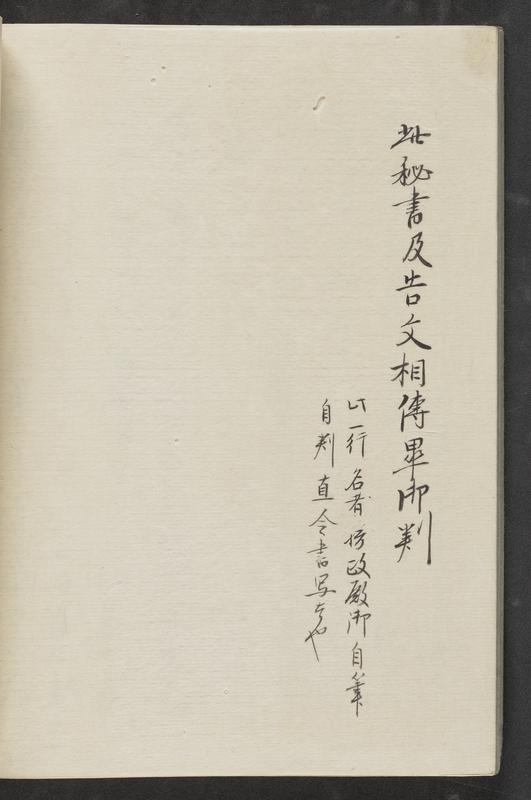 此秘書及告文相傳畢御判
此一行名者政殿御自筆
自判直令書写者也